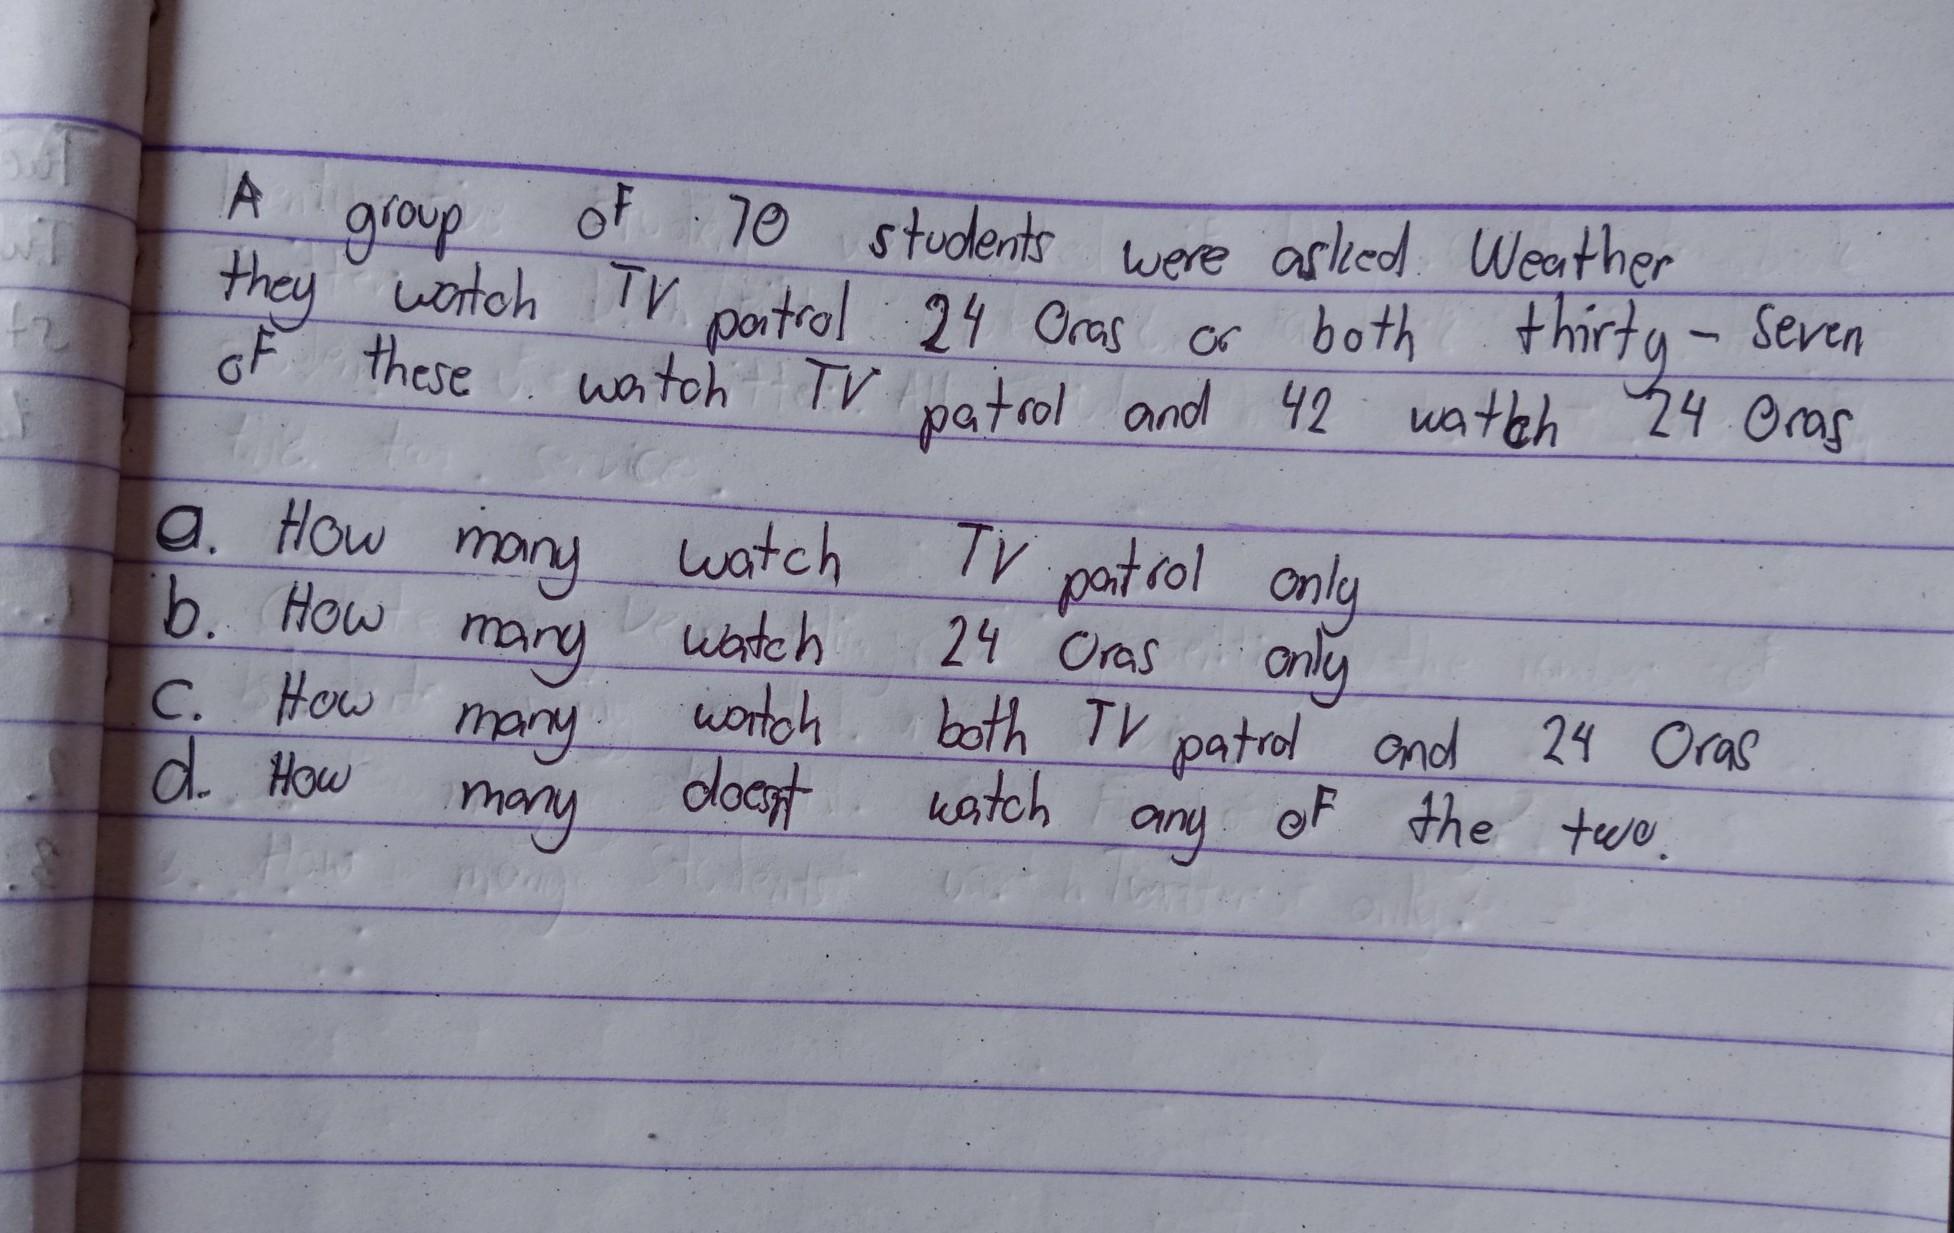 A group of 70 students were asked Weather
they watch TV patrol 24 Oras or both thirty - seven
of these watch TV patrol and 42 watch 24 Oras
a. How many watch TV patrol only
b. How many watch 24 Oras only
c. How many watch both TV patrol and 24 Oras
d. How many doesnt watch any of the two.